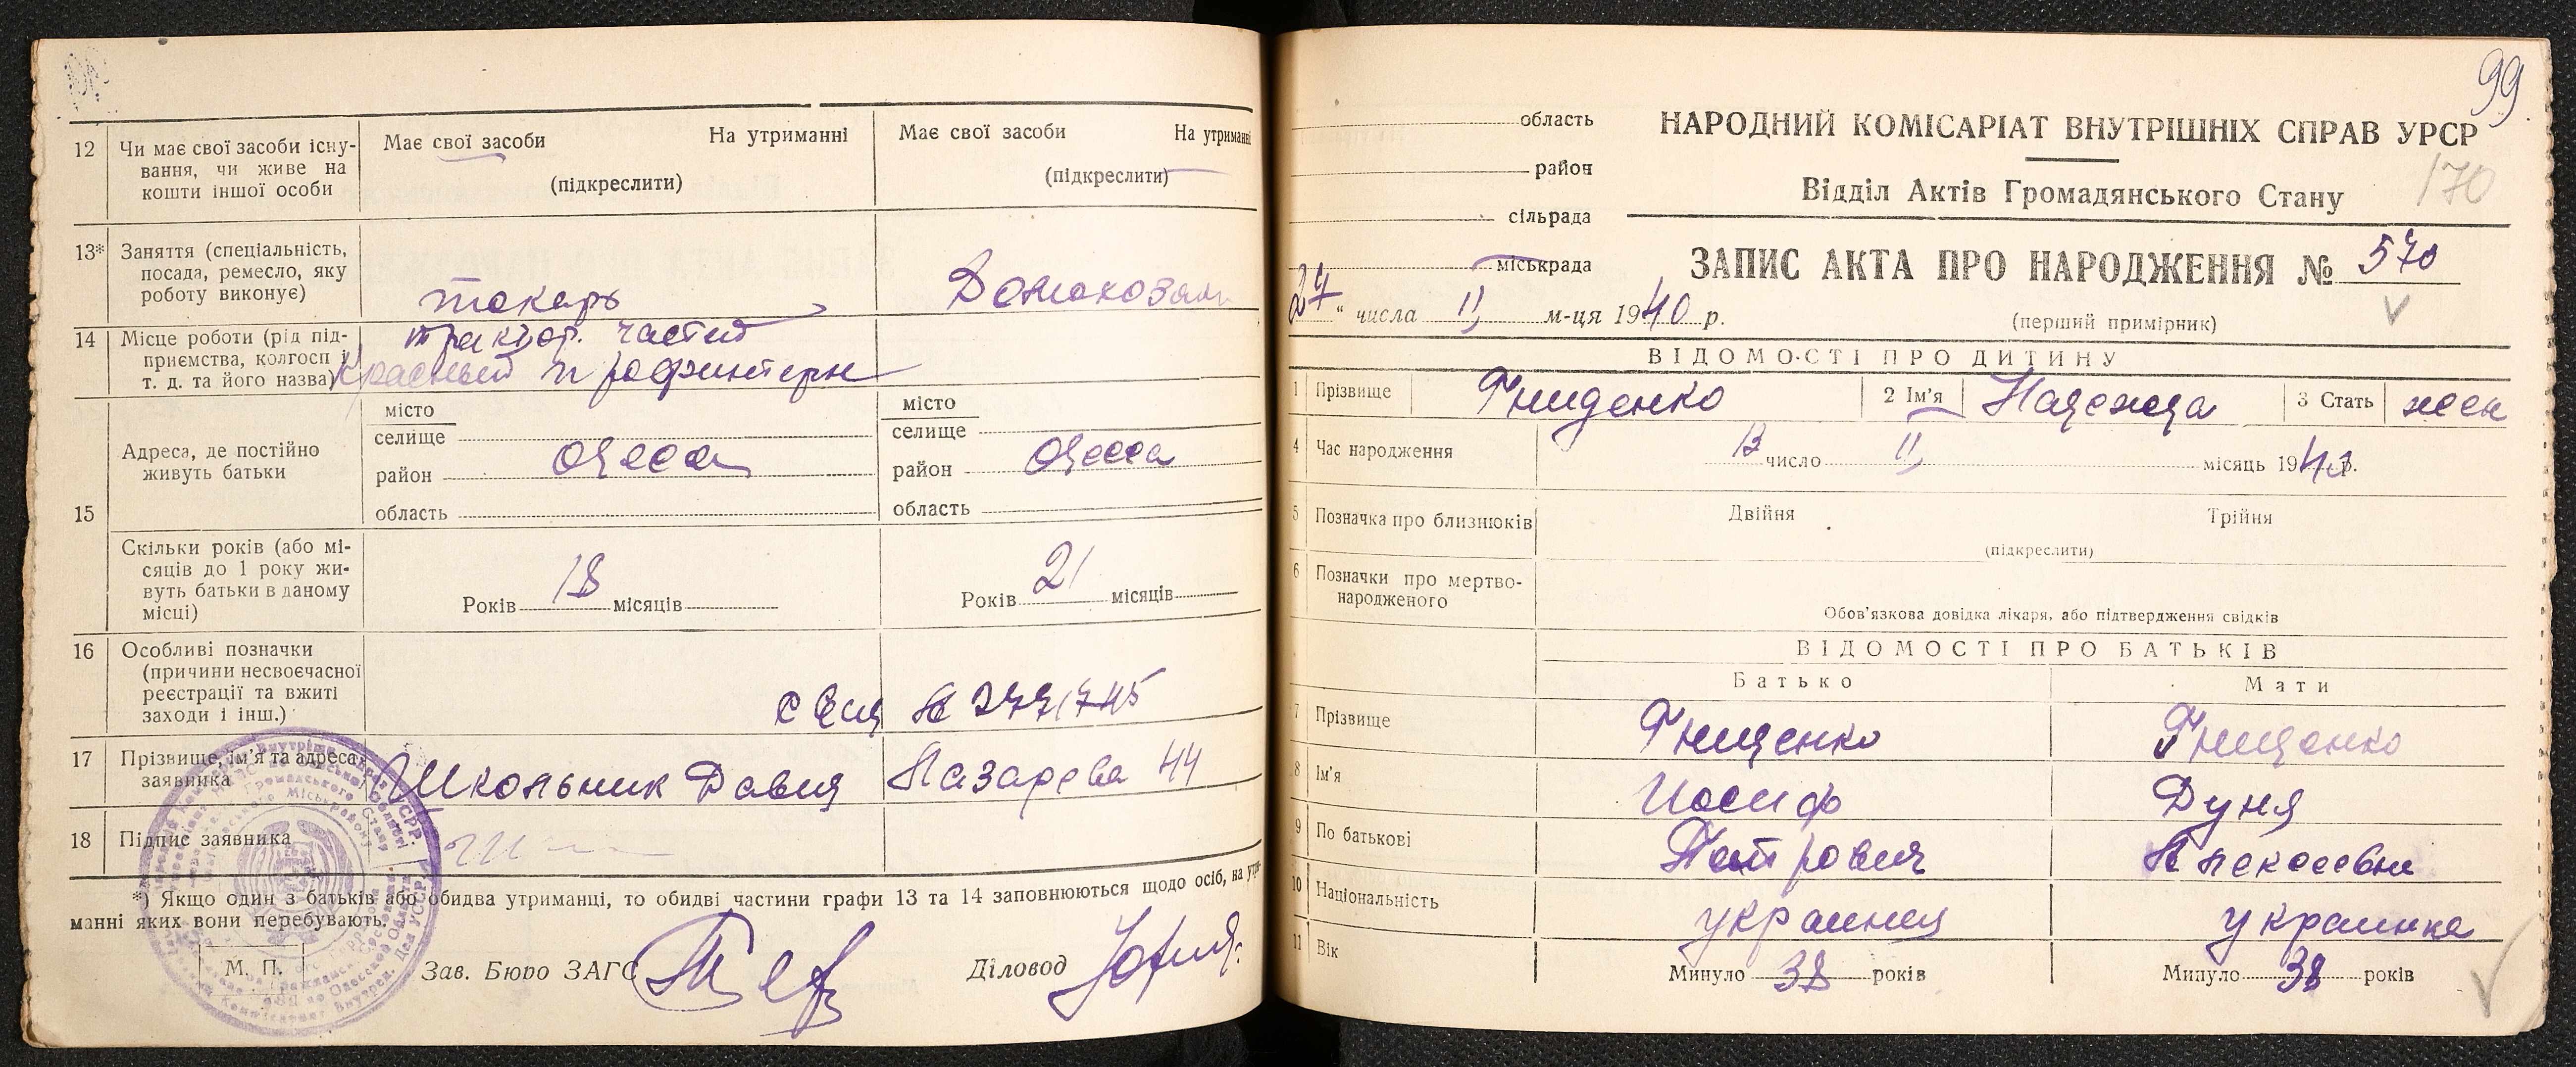 12 Чи має свої засоби існу-
вання, чи живе на
кошти іншої особи
Має свої засоби На утриманні
(підкреслити)
Має свої засоби На утриманні
(підкреслити)
13* Заняття (спеціальність,
посада, ремесло, яку
роботу виконує)
токарь
Домохозяй
14 Місце роботи (рід під-
приємства, колгосп і
т. д. та його назва)
трактор. частей
Красный профинтерн
15 Адреса, де постійно
живуть батьки
місто
селище
район Одесса
область
місто
селище
район Одесса
область
Скільки років (або мі-
сяців до 1 року жи-
вуть батьки в даному
місці)
Років 18 місяців
Років 21 місяців
16 Особливі позначки
(причини несвоєчасної
реєстрації та вжиті
заходи і інш.)
17 Прізвище, ім'я та адреса
заявника
Школьник Давид Лазарева 44
18 Підпис заявника
*) Якщо один з батьків або обидва утриманці, то обидві частини графи 13 та 14 заповнюються щодо осіб, на утри-
манні яких вони перебувають.
М. П. Зав. Бюро ЗАГС Діловод
99
170
область
район
сільрада
міськрада
НАРОДНИЙ КОМІСАРІАТ ВНУТРІШНІХ СПРАВ УРСР
Відділ Актів Громадянського Стану
ЗАПИС АКТА ПРО НАРОДЖЕННЯ № 570
27 " числа II м-ця 1940 р.
(перший примірник)
ВІДОМОСТІ ПРО ДИТИНУ
1 Прізвище Гниденко 2 Ім'я Надежда 3 Стать жен
4 Час народження 13 число II місяць 1940 р.
5 Позначка про близнюків Двійня Трійня
(підкреслити)
6 Позначки про мертво-
народженого
Обов'язкова довідка лікаря, або підтвердження свідків
ВІДОМОСТІ ПРО БАТЬКІВ
Батько Мати
7 Прізвище Гниденко Гниденко
8 Ім'я Иосиф Дуня
9 По батькові Петрович Алексеевна
10 Національність украинец украинка
11 Вік Минуло 38 років Минуло 38 років